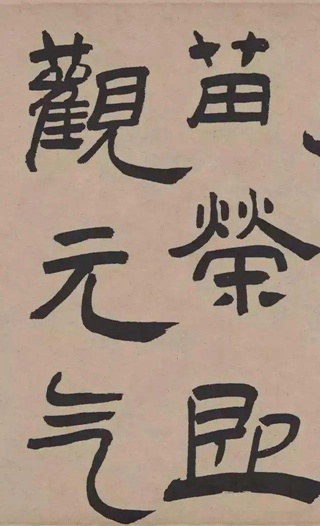 苗榮即
觀元气